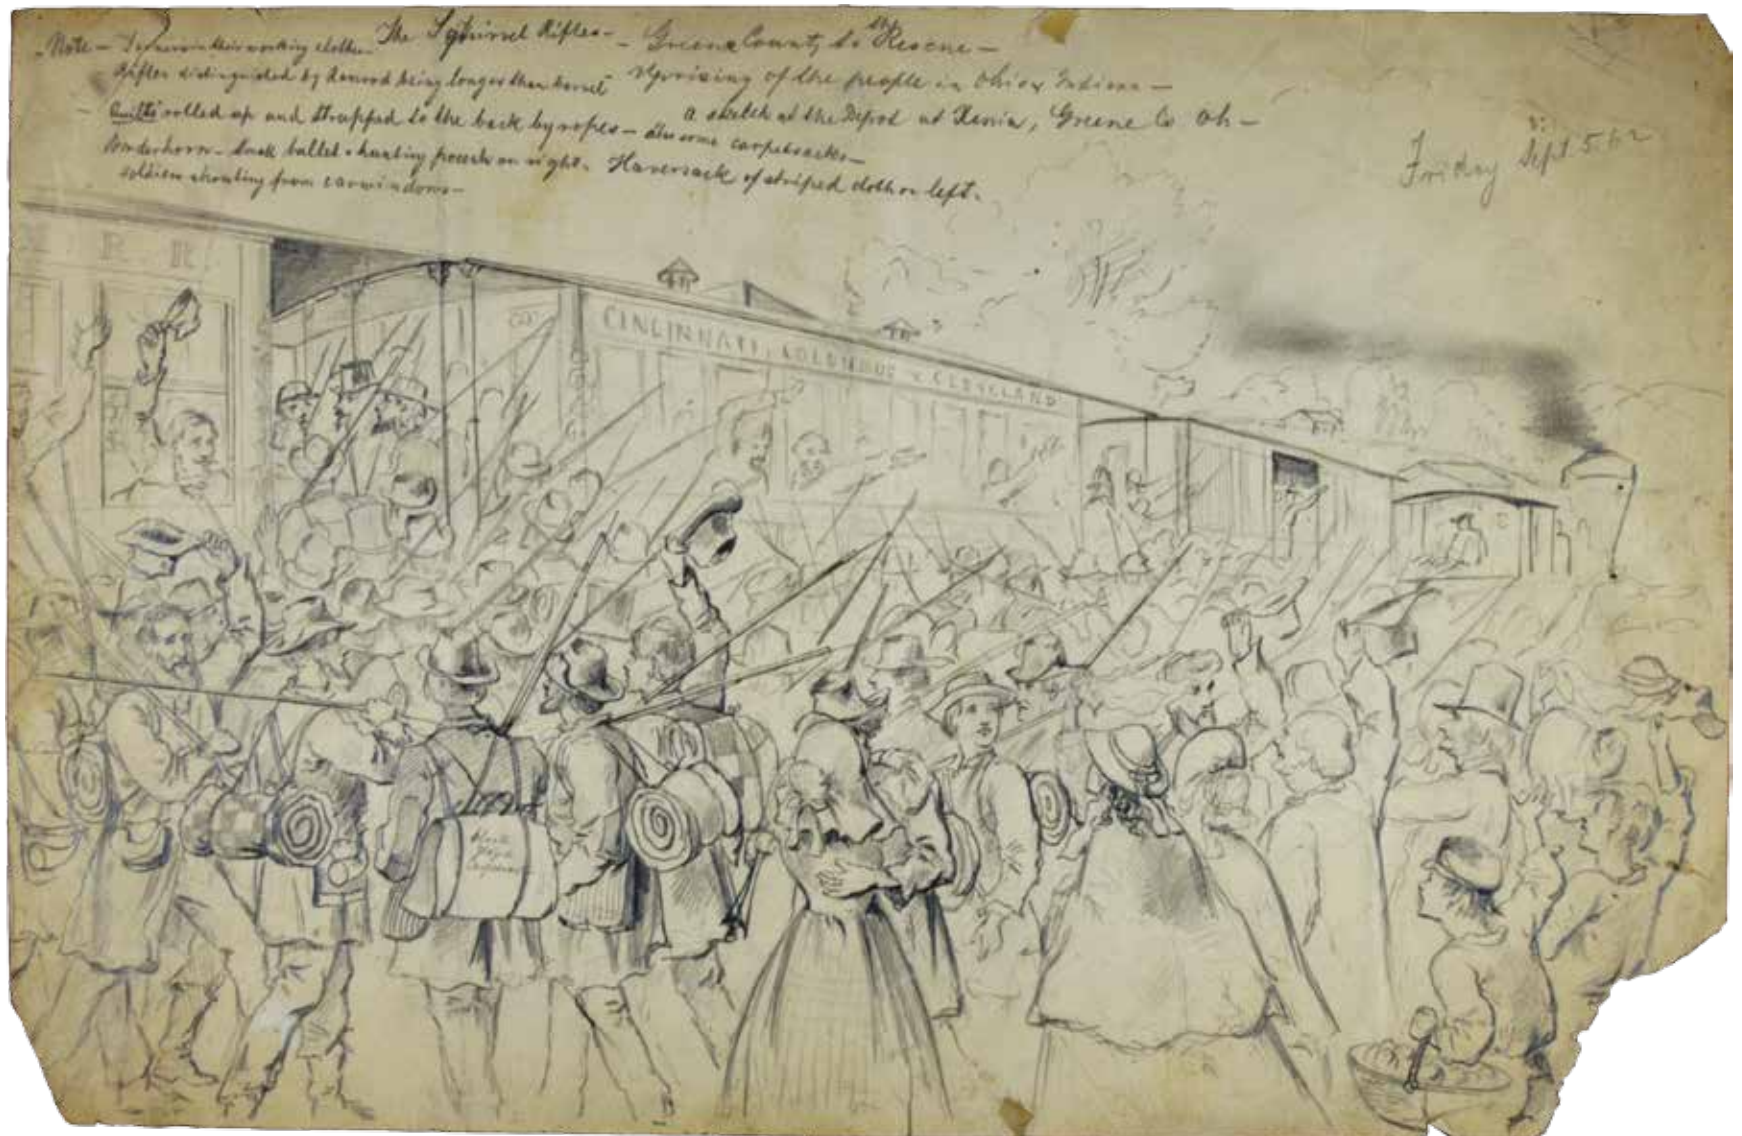 Note — Farmers in their working clothes. The Squirrel Rifles — Greene County to the Rescue —
Rifles distinguished by Ramrod being longer than barrel — Uprising of the people in Ohio & Indiana —
Quilts rolled up and strapped to the back by ropes — also some carpetsacks —
a sketch at the Depot at Xenia, Greene Co Oh —
Powderhorn - buck bullet & hunting pouch on right. Haversack of striped cloth on left.
soldiers shouting from car windows —
Friday Sept 5. 62
R R
CINCINNATI, COLUMBUS & CLEVELAND